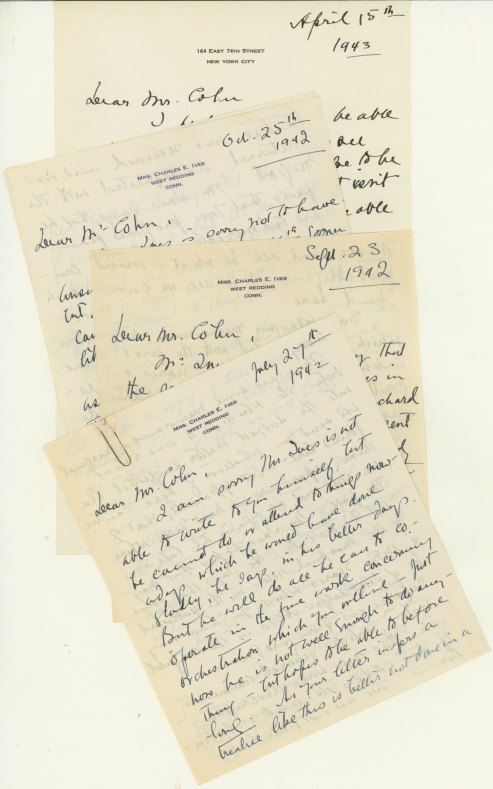 April 15th
1943
164 EAST 74TH STREET
NEW YORK CITY
Dear Mr. Cohn
be able
able
Oct. 25th
1942
MRS. CHARLES E. IVES
WEST REDDING
CONN.
Dear Mr Cohn,
Ives is sorry not to have
sooner
Sept. 23
1942
MRS. CHARLES E. IVES
WEST REDDING
CONN.
Dear Mr. Cohn,
as the
that
in
July 27th
1942
MRS. CHARLES E. IVES
WEST REDDING
CONN.
Dear Mr. Cohn,
I am sorry Mr. Ives is not
able to write to you himself, but
he cannot do or attend to things now-
adays which he would have done
gladly, he says, in his better days.
But he will do all he can to co-
operate in the fine work concerning
orchestration which you outline - Just
now he is not well enough to do any-
thing - but hopes to be able to before
long. As your letter infers a
treatise like this is better not done in a